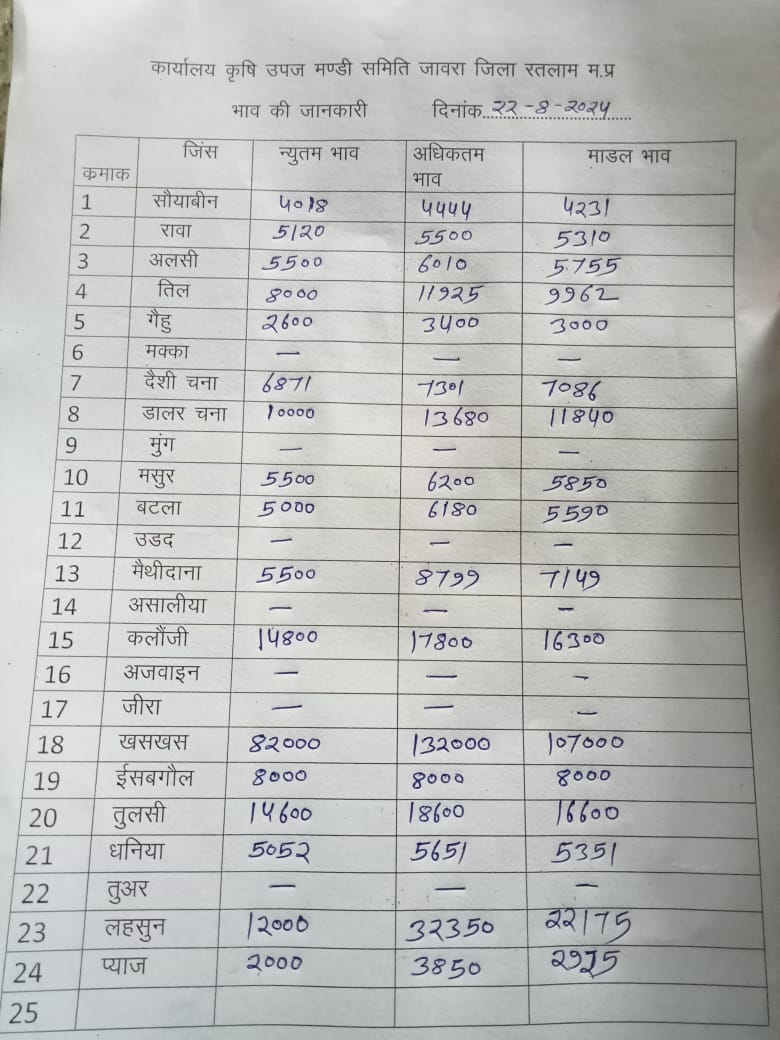 कार्यालय कृषि उपज मण्डी समिति जावरा जिला रतलाम म.प्र
भाव की जानकारी दिनांक 22-8-2024
कमाक जिंस न्युतम भाव अधिकतम भाव माडल भाव
1 सौयाबीन 4018 4444 4231
2 रावा 5120 5500 5310
3 अलसी 5500 6010 5755
4 तिल 8000 11925 9962
5 गैहु 2600 3400 3000
6 मक्का — — —
7 दैशी चना 6871 7301 7086
8 डालर चना 10000 13680 11840
9 मुंग — — —
10 मसुर 5500 6200 5850
11 बटला 5000 6180 5590
12 उडद — — —
13 मैथीदाना 5500 8799 7149
14 असालीया — — —
15 कलौंजी 14800 17800 16300
16 अजवाइन — — —
17 जीरा — — —
18 खसखस 82000 132000 107000
19 ईसबगौल 8000 8000 8000
20 तुलसी 14600 18600 16600
21 धनिया 5052 5651 5351
22 तुअर — — —
23 लहसुन 12000 32350 22175
24 प्याज 2000 3850 2925
25